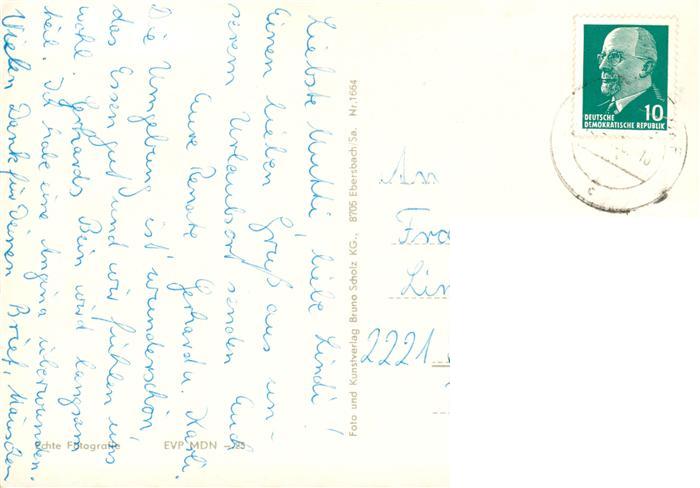 Liebste Mutti, liebe Lindi!
Einen lieben Gruß aus un-
serem Urlaubsort senden Euch
Eure Renate Gerhard u. Karli
Die Umgebung ist wunderschön
das Essen gut und wir fühlen uns
wohl. Gerhards Bein wird langsam
heil. Ich habe eine Angina überwunden.
Vielen Dank für Deinen Brief, Mäuschen
Echte Fotografie EVP MDN –.23
Foto und Kunstverlag Bruno Scholz KG., 8705 Ebersbach/Sa. Nr. 1664
10
DEUTSCHE
DEMOKRATISCHE REPUBLIK
An
2221